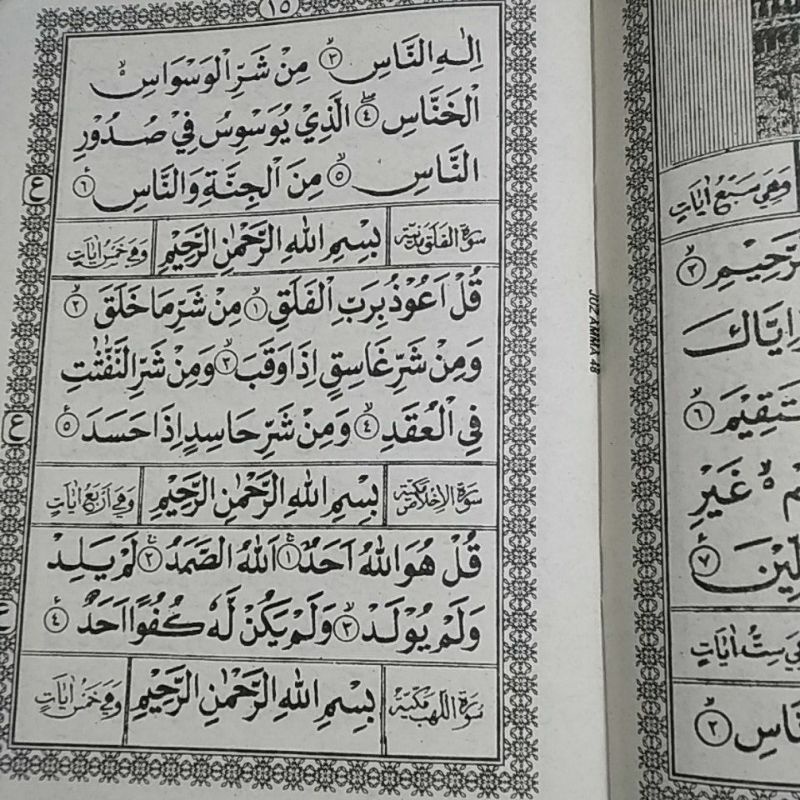 ١٥
اِلٰهِ النَّاسِ ٣ مِنْ شَرِّ الْوَسْوَاسِ
الْخَنَّاسِ ٤ الَّذِيْ يُوَسْوِسُ فِيْ صُدُوْرِ
النَّاسِ ٥ مِنَ الْجِنَّةِ وَالنَّاسِ ٦
ع
سُوْرَةُ الفَلَق مدنية بِسْمِ اللهِ الرَّحْمٰنِ الرَّحِيْمِ وَهِيَ خَمْسُ اٰيَاتٍ
قُلْ اَعُوْذُ بِرَبِّ الْفَلَقِ ١ مِنْ شَرِّ مَا خَلَقَ ٢
وَمِنْ شَرِّ غَاسِقٍ اِذَا وَقَبَ ٣ وَمِنْ شَرِّ النَّفّٰثٰتِ
فِى الْعُقَدِ ٤ وَمِنْ شَرِّ حَاسِدٍ اِذَا حَسَدَ ٥
ع
سُوْرَةُ الاِخْلَاص مَكِّيَّة بِسْمِ اللهِ الرَّحْمٰنِ الرَّحِيْمِ وَهِيَ اَرْبَعُ اٰيَاتٍ
قُلْ هُوَ اللهُ اَحَدٌ ١ اَللهُ الصَّمَدُ ٢ لَمْ يَلِدْ
وَلَمْ يُوْلَدْ ٣ وَلَمْ يَكُنْ لَّهٗ كُفُوًا اَحَدٌ ٤
سُوْرَةُ اللَّهَب مَكِّيَّة بِسْمِ اللهِ الرَّحْمٰنِ الرَّحِيْمِ وَهِيَ خَمْسُ اٰيَاتٍ
JUZ AMMA 48
وَهِيَ سَبْعُ اٰيَاتٍ
الرَّحِيْمِ ٢
اِيَّاكَ
٦
غَيْرِ
٧
سِتُّ اٰيَاتٍ
٢